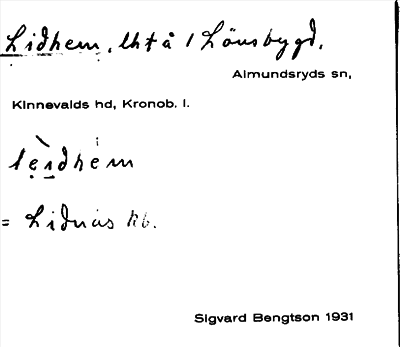 Lidhem, lht å 1 Lönsbygd,
Almundsryds sn,
Kinnevalds hd, Kronob. l.
= Lidnäs kb.
Sigvard Bengtson 1931